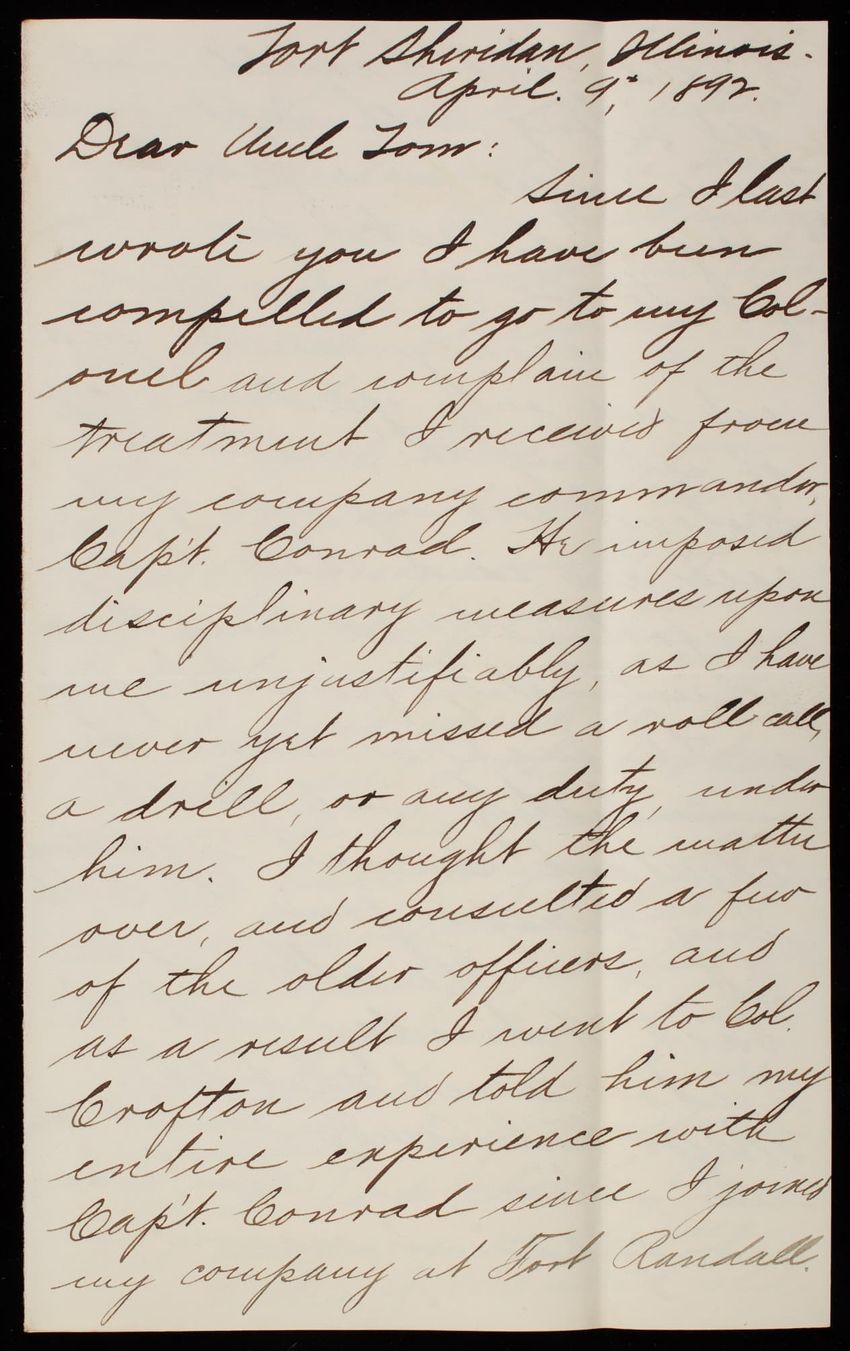 Fort Sheridan, Illinois.
April. 9", 1892.
Dear Uncle Tom:
Since I last
wrote you I have been
compelled to go to my Col-
onel and complain of the
treatment I received from
my company commander,
Cap't. Conrad. He imposed
disciplinary measures upon
me unjustifiably, as I have
never yet missed a roll call,
a drill, or any duty, under
him. I thought the matter
over, and consulted a few
of the older officers, and
as a result I went to Col.
Crofton and told him my
entire experience with
Cap't. Conrad since I joined
my company at Fort Randall.